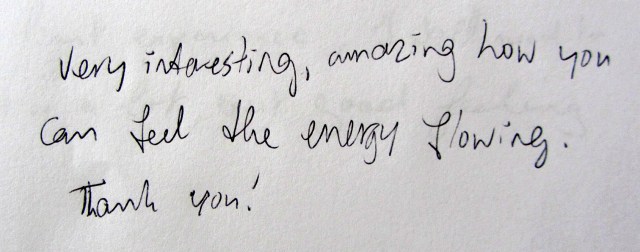 Very interesting, amazing how you
can feel the energy flowing.
Thank you!